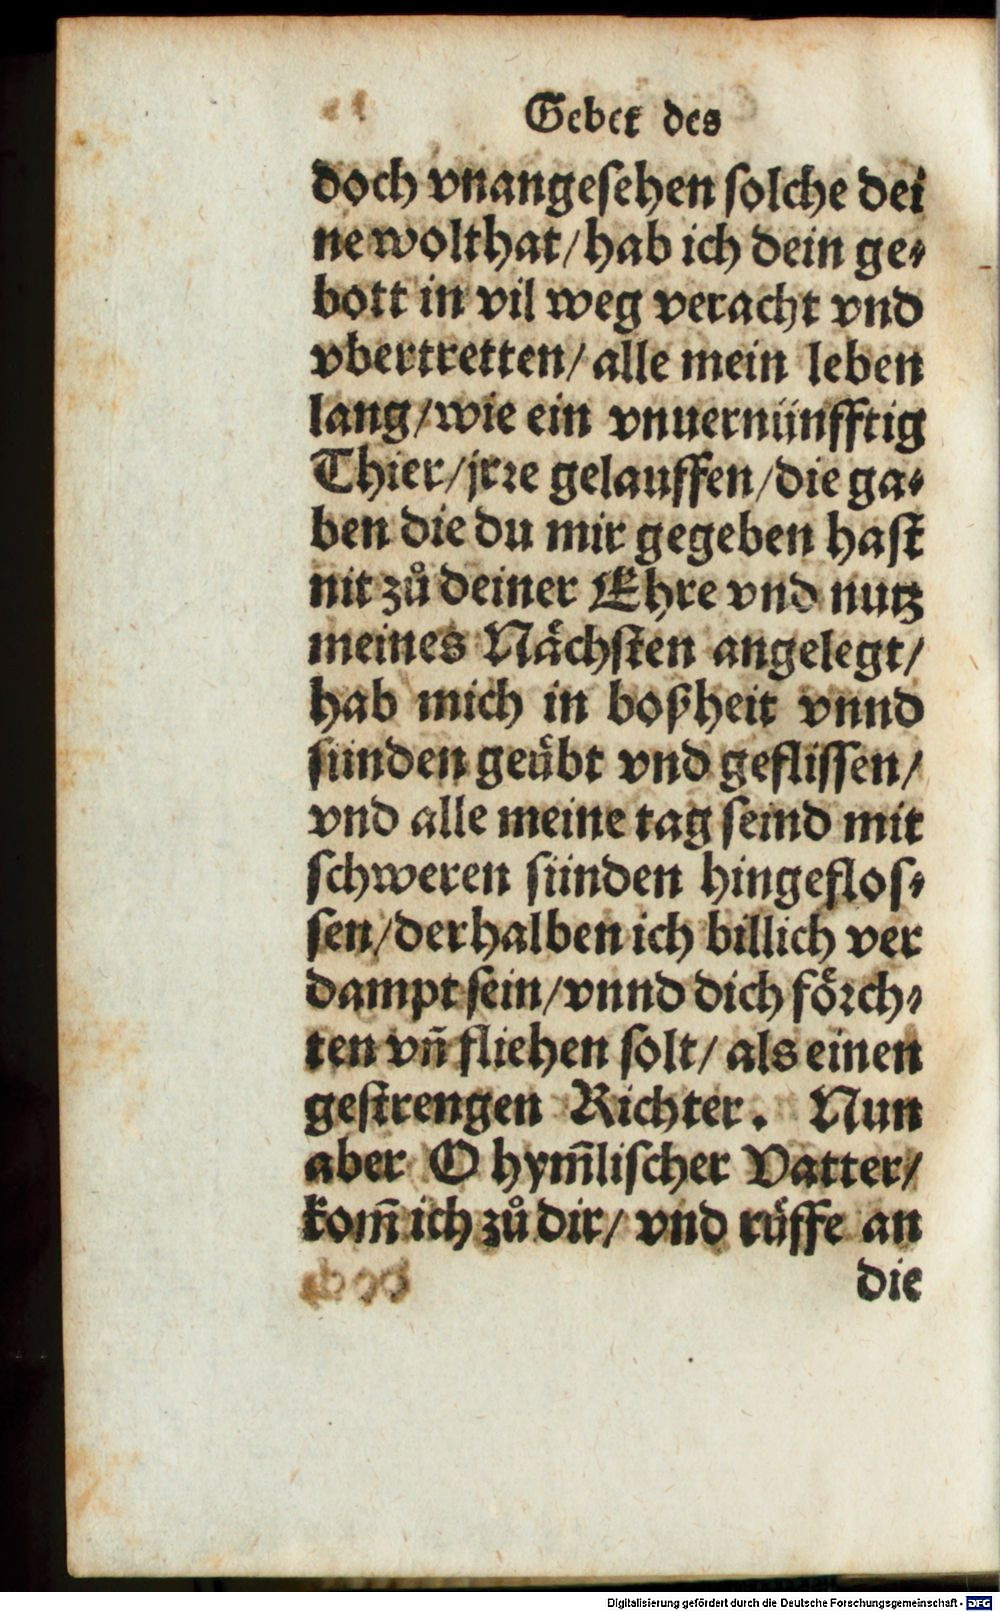 Gebet des
doch vnangesehen solche dei
ne wolthat/ hab ich dein ge⸗
bott in vil weg veracht vnd
vbertretten/ alle mein leben
lang/ wie ein vnuernünfftig
Thier/ jrre gelauffen/ die ga⸗
ben die du mir gegeben hast
nit zů deiner Ehre vnd nutz
meines Nächsten angelegt/
hab mich in boßheit vnnd
sünden geübt vnd geflissen/
vnd alle meine tag seind mit
schweren sünden hingeflos⸗
sen/ derhalben ich billich ver
dampt sein/ vnnd dich förch⸗
ten vn̄ fliehen solt/ als einen
gestrengen Richter. Nun
aber O hym̄lischer Vatter/
kom̄ ich zů dir/ vnd rüffe an
die
Digitalisierung gefördert durch die Deutsche Forschungsgemeinschaft - DFG